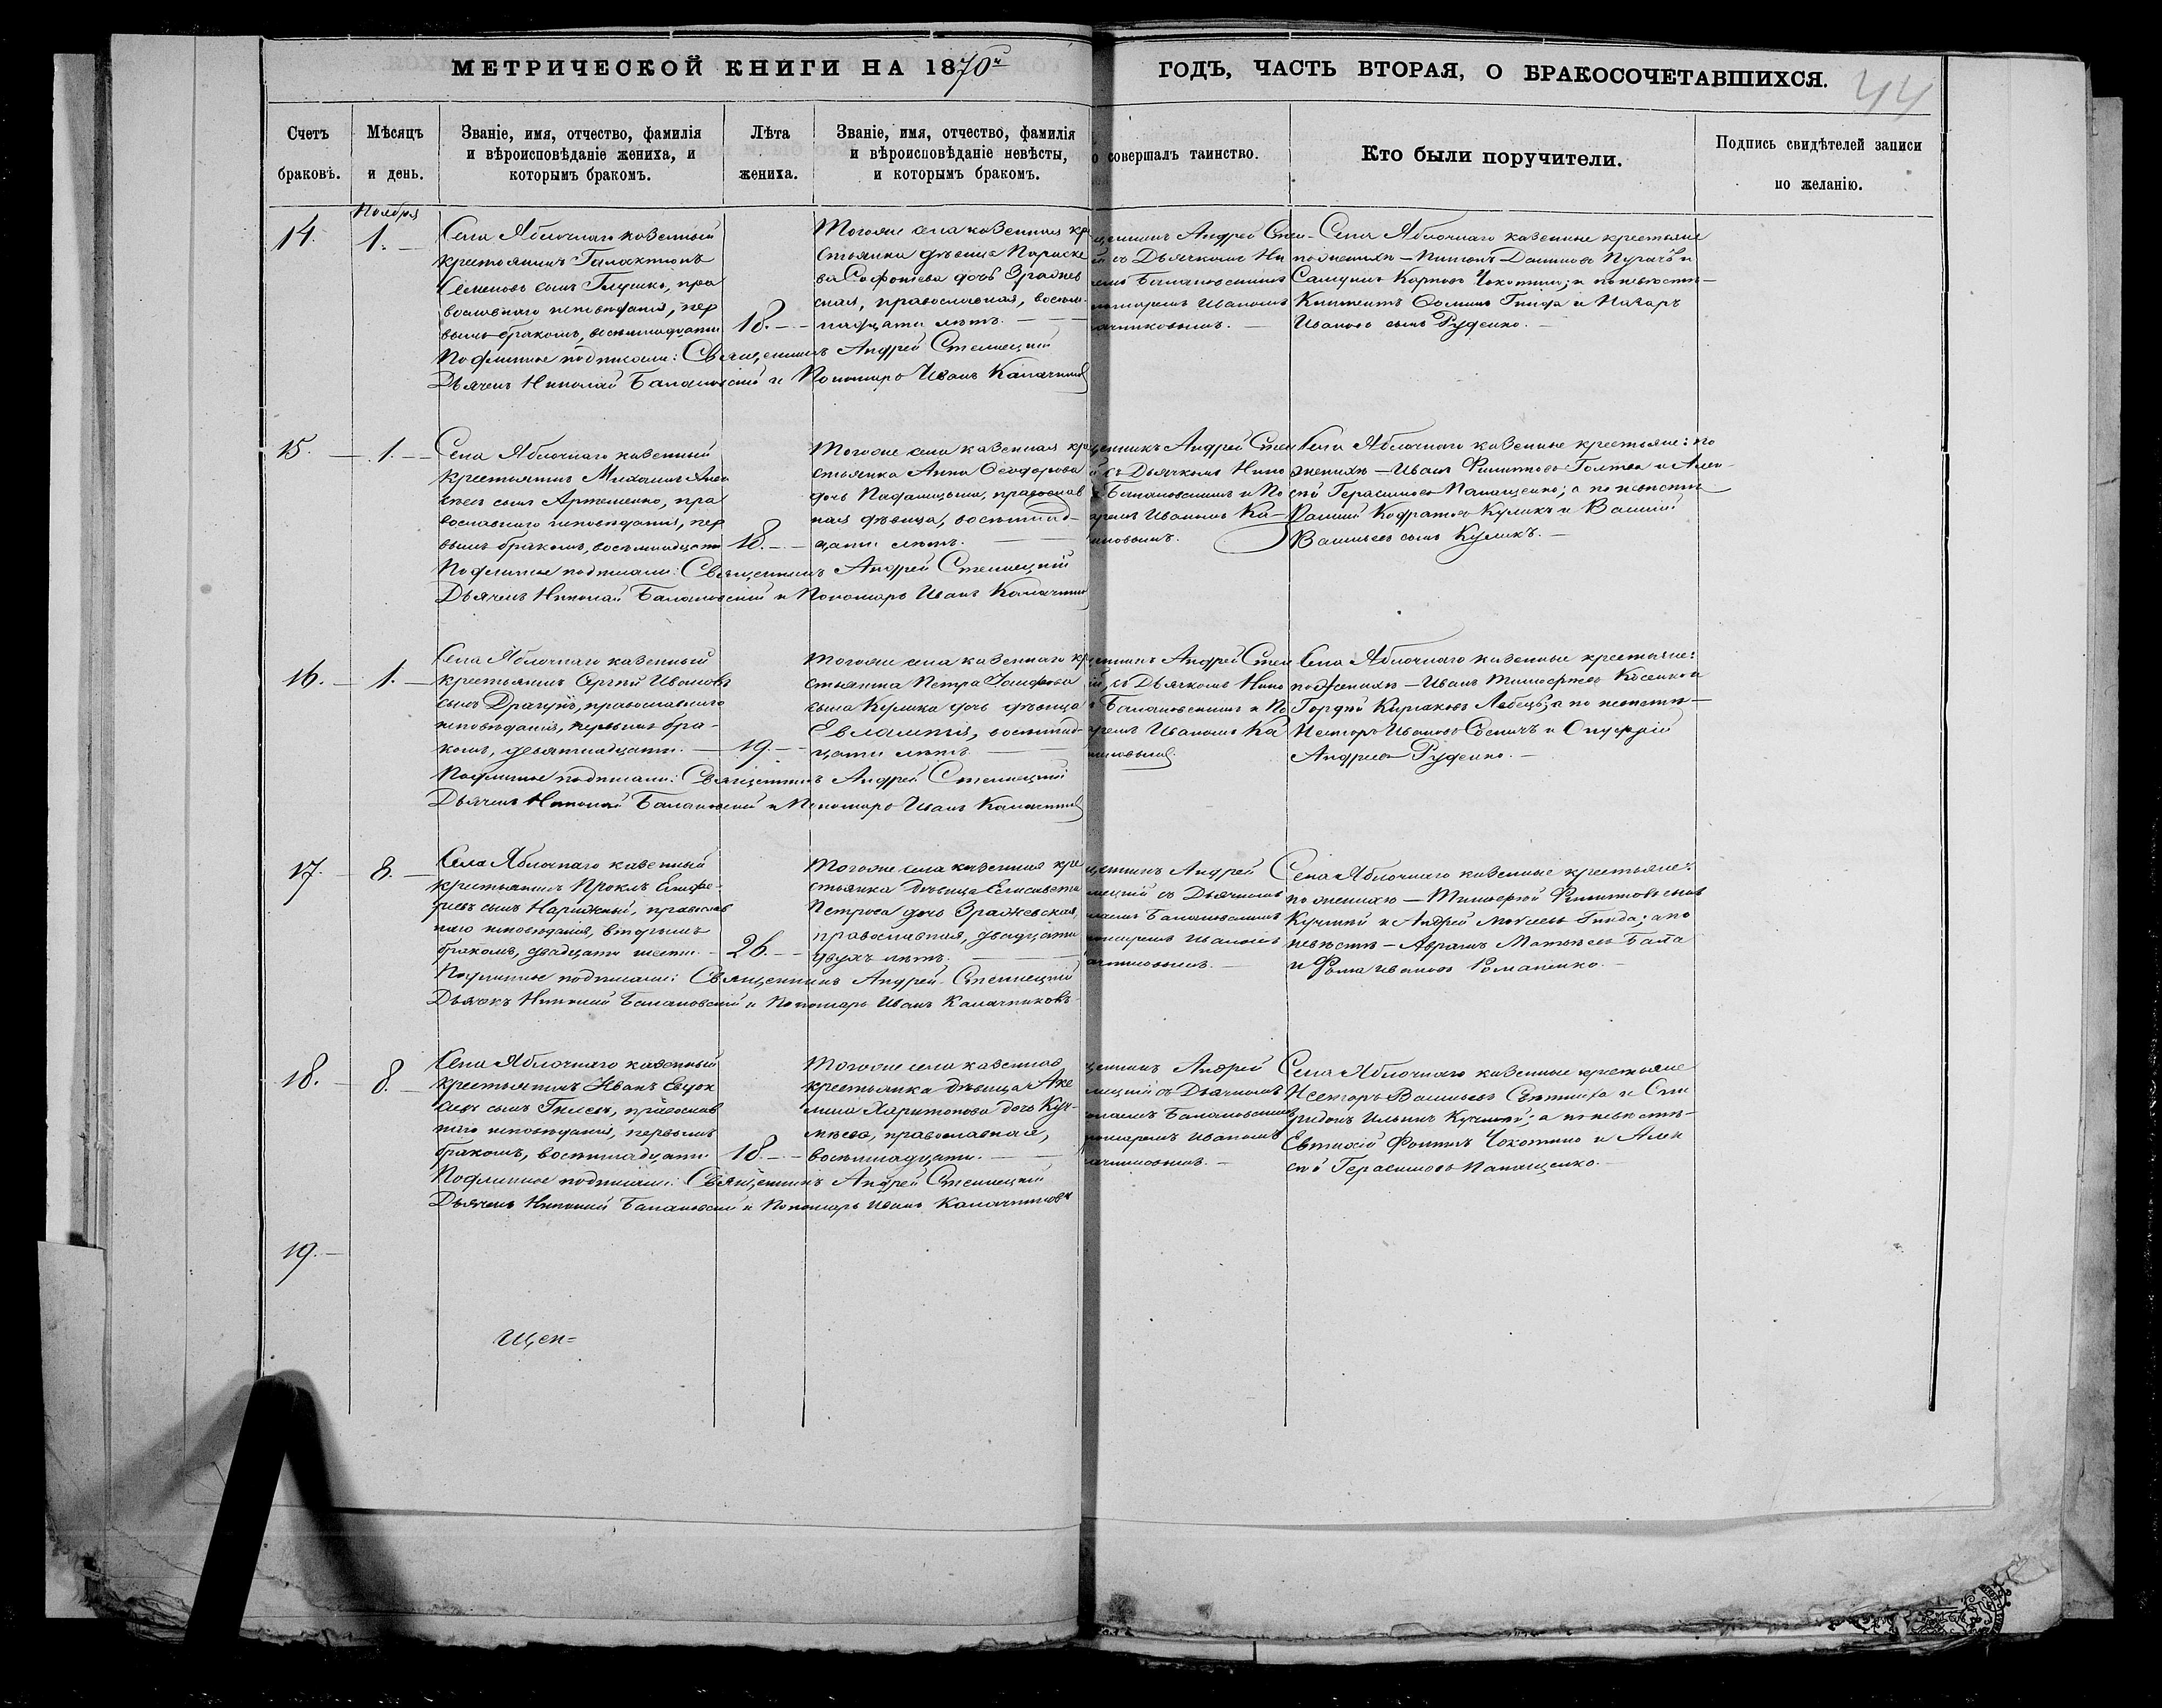 МЕТРИЧЕСКОЙ КНИГИ НА 1870й
ГОДЪ, ЧАСТЬ ВТОРАЯ, О БРАКОСОЧЕТАВШИХСЯ.
44
Счетъ
браковъ.
Мѣсяцъ
и день.
Званіе, имя, отчество, фамилія
и вѣроисповѣданіе жениха, и
которымъ бракомъ.
Лѣта
жениха.
Званіе, имя, отчество, фамилія
и вѣроисповѣданіе невѣсты,
и которымъ бракомъ.
о совершалъ таинство.
Кто были поручители.
Подпись свидѣтелей записи
по желанію.
Ноября
14.
1.
Села Яблочнаго казенный
крестьянинъ Галактіонъ
Семеновъ сынъ Глушко, пра
вославнаго исповѣданія, пер
вымъ бракомъ, восемнадцати
18.
Тогоже села казенная кр
стьянка дѣвица Параске
ва Софоніева дочь
ская, православная, восем-
надцати лѣтъ.
щенникъ Андрей Стел-
й съ Дьячкомъ Ни
емъ Балановскимъ
номаремъ Иваномъ
лачниковымъ.
Села Яблочнаго казенные крестьяне
по женихѣ —
Самуилъ Карповъ Чохотинъ; а по невѣстѣ —
Климентъ Гнида и Назаръ
Ивановъ сынъ Руденко.
Подлинное подписали: Священникъ Андрей Стеллецкій
Дьячекъ Николай Балановскій и Пономарь Иванъ Калачник
15.
1.
Села Яблочнаго казенный
крестьянинъ Михаилъ
сынъ Артеменко, пра
вославнаго исповѣданія, пер
вымъ бракомъ, восемнадцати
18.
Тогоже села казенная кре
стьянка Анна Ѳеодорова
дочь православ
ная дѣвица, восемнад-
цати лѣтъ.
щенникъ Андрей Стел
й съ Дьячкомъ Нико
Балановскимъ и По
аремъ Иваномъ Ка-
никовымъ.
Села Яблочнаго казенные крестьяне: по
женихѣ — Иванъ Филиповъ Голтва и Алек
сѣй Герасимовъ Панащенко; а по невѣстѣ
Кодратовъ Куликъ и Василій
Васильевъ сынъ Куликъ.
Подлинное подписали: Священникъ Андрей Стеллецкій
Дьячекъ Николай Балановскій и Пономарь Иванъ Калачник
16.
1.
Села Яблочнаго казенный
крестьянинъ Сергѣй Ивановъ
сынъ Драгунъ, православнаго
исповѣданія, первымъ бра-
комъ, девятнадцати.
19.
Тогоже села казеннаго кр
стьянина Петра
сына Кулика дочь дѣвица
Евлампія, восемнад-
цати лѣтъ.
щенникъ Андрей Стел
ій, съ Дьячкомъ Нико
Балановскимъ и По
ремъ Иваномъ Ка
никовымъ.
Села Яблочнаго казенные крестьяне:
по женихѣ — Иванъ Тимоѳеевъ Косенко и
Гордѣй Киріаковъ Лебедь; а по невѣстѣ —
Несторъ Ивановъ и Онуфрій
Андреевъ Руденко.
Подлинное подписали: Священникъ Андрей Стеллецкій
Дьячекъ Николай Балановскій и Пономарь Иванъ Калачник
17.
8.
Села Яблочнаго казенный
крестьянинъ Проклъ Елифе-
ріевъ сынъ Нарижный, православ
наго исповѣданія, вторымъ
бракомъ, двадцати шести.
26.
Тогоже села казенная кре
стьянка дѣвица Елисавета
Петрова дочь Зражевская,
православная, двадцати
двухъ лѣтъ.
щенникъ Андрей
лецкій съ Дьячкомъ
лаемъ Балановскимъ
номаремъ Иваномъ
ачниковымъ.
Села Яблочнаго казенные крестьяне:
по женихѣ — Тимоѳей Филиповъ сынъ
Кучмій и Андрей Моѵсеевъ Гнида; а по
невѣстѣ — Аврамъ Матвѣевъ
и Фома Ивановъ Романенко.
Подлинное подписали: Священникъ Андрей Стеллецкій
Дьячокъ Николай Балановскій и Пономарь Иванъ Калачниковъ
18.
8.
Села Яблочнаго казенный
крестьянинъ Иванъ Евдок
іевъ сынъ православ
наго исповѣданія, первымъ
бракомъ, восемнадцати
18.
Тогоже села казенная
крестьянка дѣвица Аке
лина Харитонова дочь Куч-
міева, православная,
восемнадцати.
щенникъ Андрей
лецкій съ Дьячкомъ
олаемъ Балановскимъ
номаремъ Иваномъ
ачниковымъ.
Села Яблочнаго казенные крестьяне
Несторъ Васильевъ и Спи
ридонъ Ильинъ Кучмій; а по невѣстѣ —
Евтихій Фоминъ Чохотинъ и Алек
сѣй Герасимовъ Панащенко.
Подлинное подписали: Священникъ Андрей Стеллецкій
Дьячекъ Николай Балановскій и Пономарь Иванъ Калачниковъ
19.
щен=